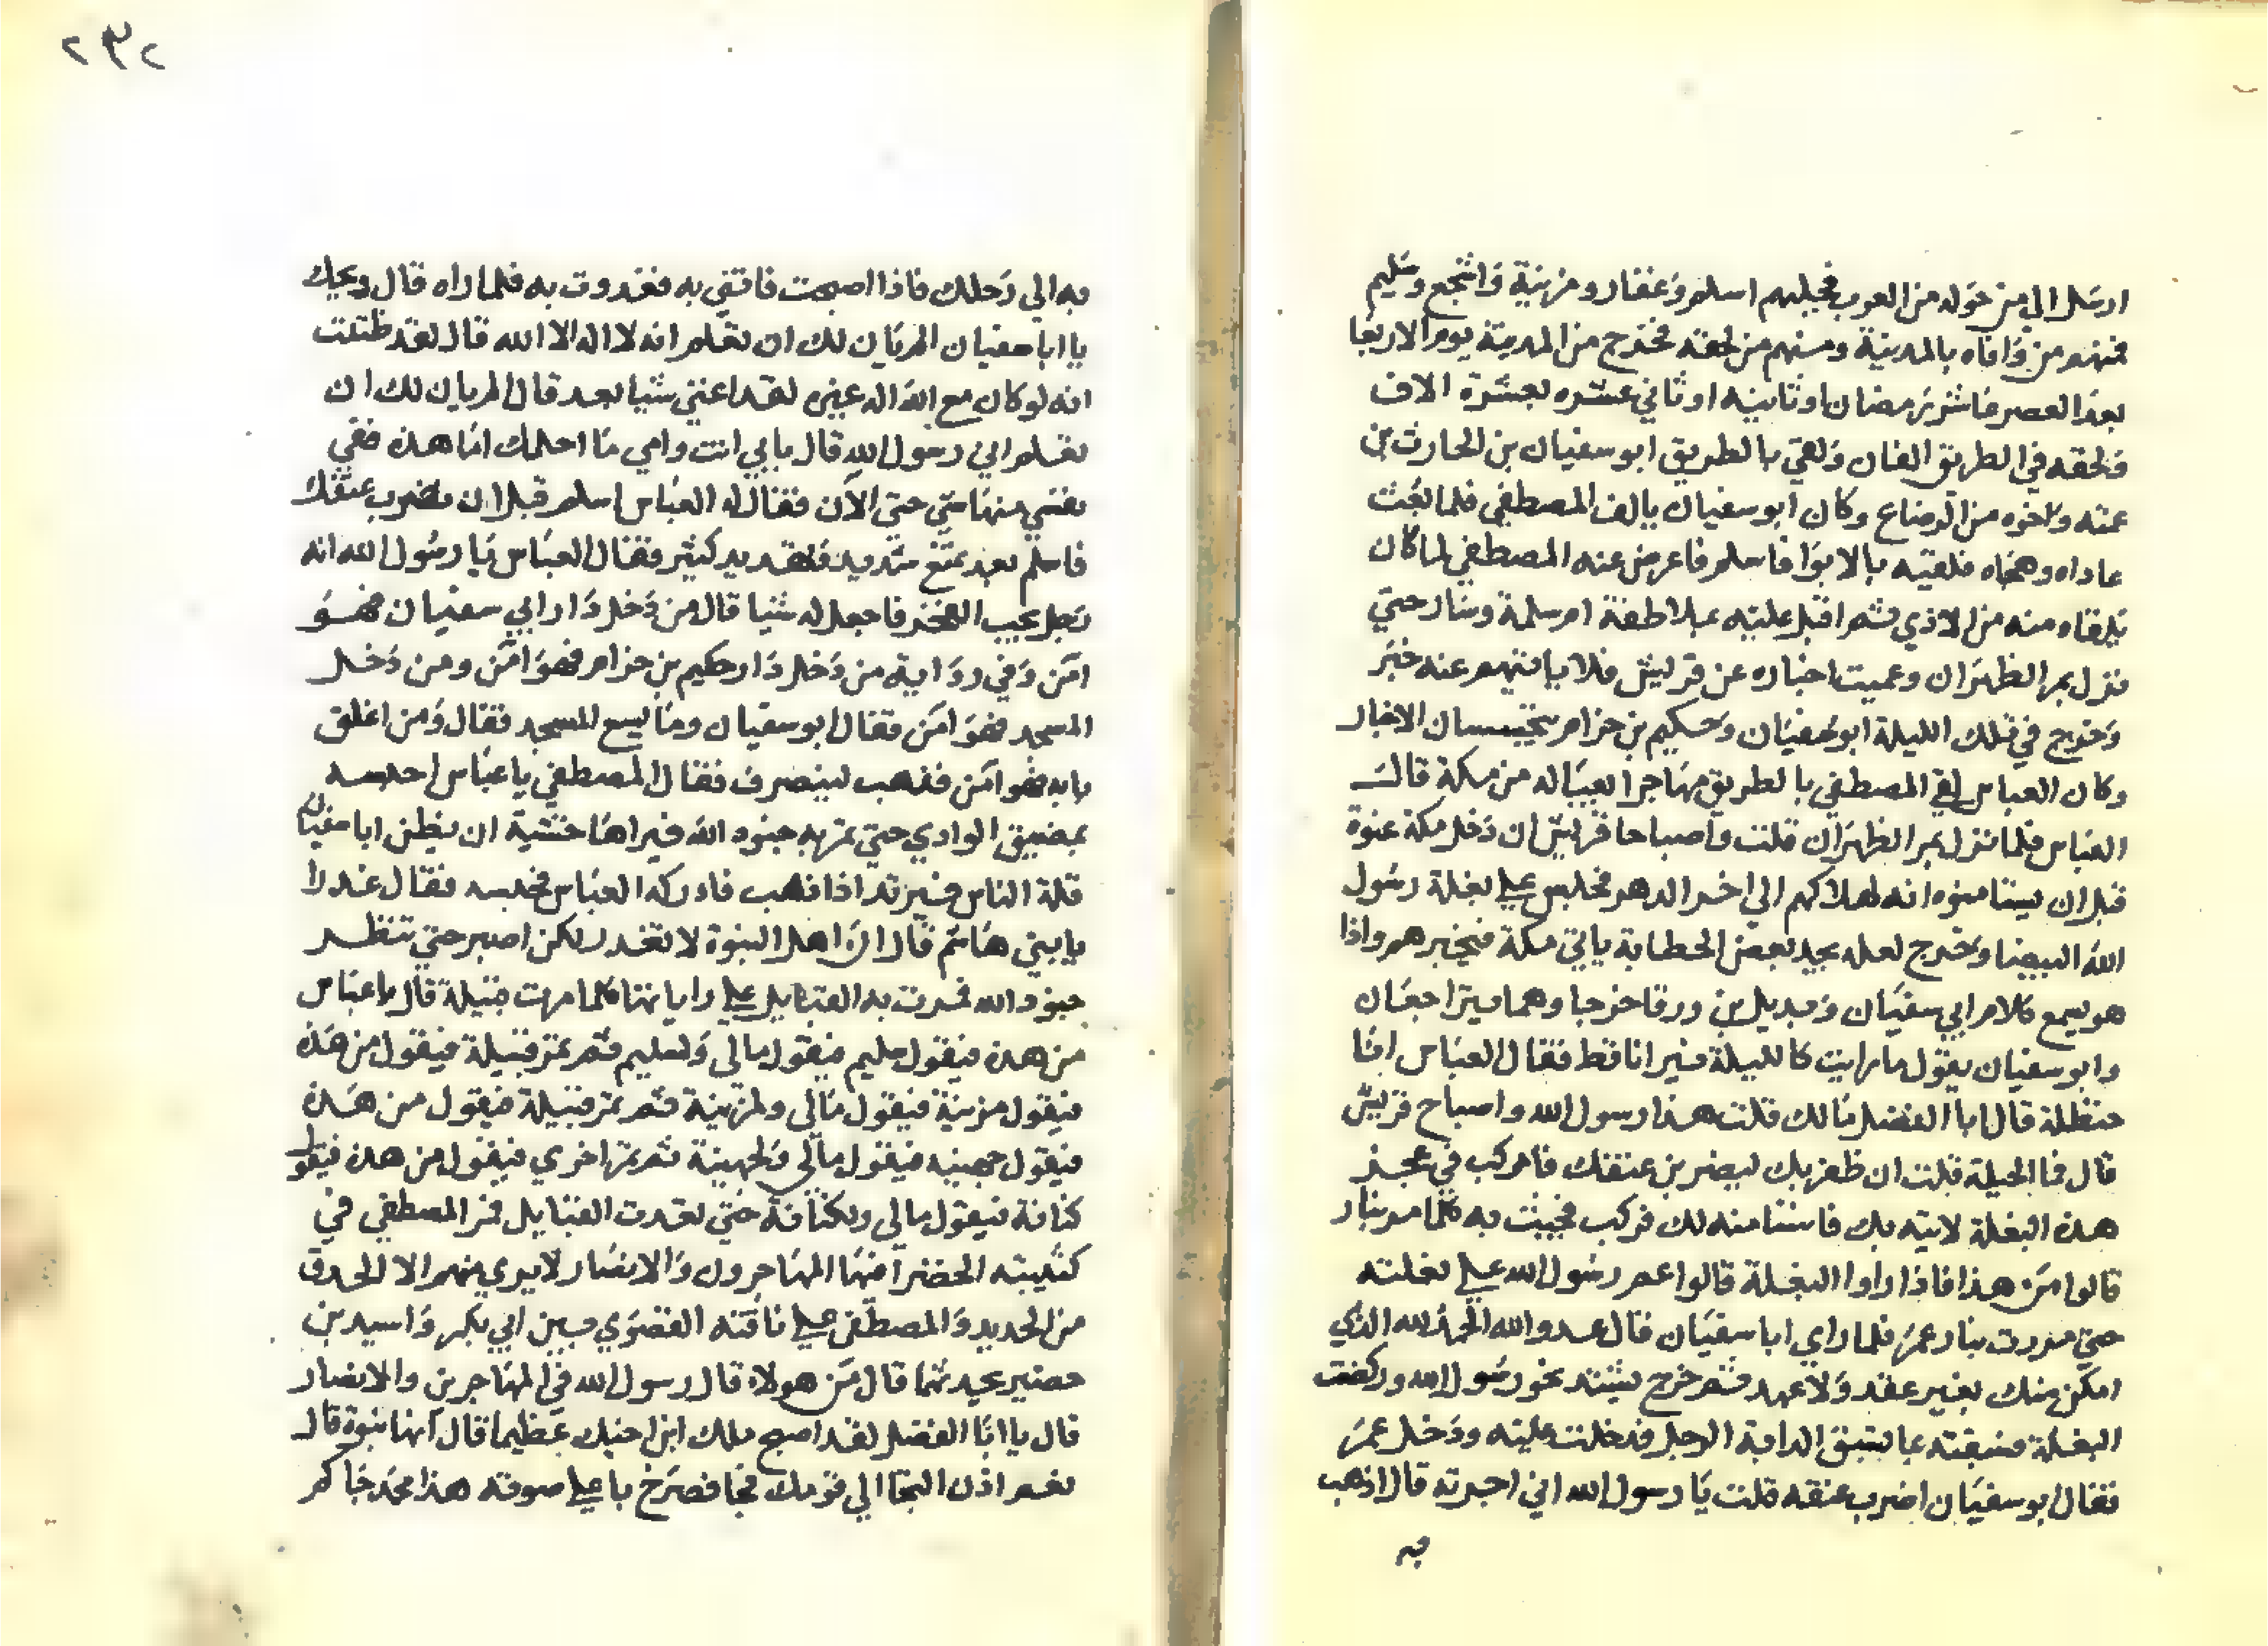 ارسل الي من حوله من العرب فجلبهم اسلم وغفار ومزينة واشجع وسليم
فمنهم من وافاه بالمدينة ومنهم من لحقه فخرج من المدينة يوم الاربعا
بعد العصر عاشر رمضان او ثانيه او ثاني عشره بعشرة الاف
فلحقه في الطريق الفان ولقي بالطريق ابو سفيان بن الحارث بن
عمته واخوه من الرضاع وكان ابو سفيان يالف المصطفي فلما بعث
عاداه وهجاه فلقيه بالابوا فاسلم فاعرض عنه المصطفي لما كان
يلقاه منه من الاذي ثم اقبل عليه بملاطفة ام سلمة وسار حتي
نزل بمر الظهران وعميت اخباره عن قريش فلا ياتيهم عنه خبر
وخرج في تلك الليلة ابو سفيان وحكيم بن حزام يتجسسان الاخبار
وكان العباس لقي المصطفي بالطريق مهاجرا بعياله من مكة قال
العباس فلما نزل بمر الظهران قلت واصباحا قريش ان دخل مكة عنوة
قبل ان يستامنوه انه لهلاكهم الي اخر الدهر فجلس علي بغلة رسول
الله البيضا وخرج لعله يجد بعض الحطابة ياتي مكة فيخبرهم واذا
هو يسمع كلام ابي سفيان وبديل بن ورقا خرجا وهما يتراجعان
وابو سفيان يقول ما رايت كالليلة نيرانا قط فقال العباس ابا
حنظلة قال ابا الفضل مالك قلت هذا رسول الله واصباح قريش
قال فما الحيلة قلت ان ظفر بك ليضربن عنقك فاركب في عجز
هذه البغلة لاتيه بك فاستامنه لك فركب فجيت به كلما مر بنار
قالوا من هذا فاذا راوا البغلة قالوا عم رسول الله علي بغلته
حتي مررت بنار عمر فلما راي ابا سفيان قال عدو الله الحمد لله الذي
امكن منك بغير عقد ولا عهد ثم خرج يشتد نحو رسول الله وركضت
البغلة فسبقته بما تسبق الدابة الرجل فدخلت عليه ودخل عمر
فقال ابو سفيان اضرب عنقه قلت يا رسول الله اني اجرته قال اذهب
به
٢٩٢
به الي رحلك فاذا اصبحت فاتني به فغدوت به فلما راه قال ويحك
يا ابا سفيان الم يان لك ان تعلم انه لا اله الا الله قال لقد ظننت
انه لو كان مع الله اله غيره لقد اغني شيا بعد قال الم يان لك ان
تعلم اني رسول الله قال بابي انت وامي ما احلمك اما هذه ففي
نفسي منها شي حتي الآن فقال له العباس اسلم قبل ان تضرب عنقك
فاسلم بعد تمنع شديد وتهديد كثير فقال العباس يا رسول الله انه
رجل يحب الفخر فاجعل له شيا قال من دخل دار ابي سفيان فهو
آمن وفي رواية من دخل دار حكيم بن حزام فهو آمن ومن دخل
المسجد فهو آمن فقال ابو سفيان وما يسع المسجد فقال ومن اغلق
بابه فهو آمن فذهب لينصرف فقال المصطفي يا عباس احبسه
بمضيق الوادي حتي تمر به جنود الله فيراها خشية ان يظن ابا سفيان
قلة الناس فيرتد اذا ذهب فادركه العباس فحبسه فقال غدرا
يا بني هاشم قال ان اهل النبوة لا تغدر لكن اصبر حتي تنظر
جنود الله فمرت به القبايل علي راياتها كلما مرت قبيلة قال يا عباس
من هذه فيقول سليم فيقول مالي ولسليم ثم تمر قبيلة فيقول من هذه
فيقول مزينة فيقول مالي ولمزينة ثم تمر قبيلة فيقول من هذه
فيقول جهينه فيقول مالي ولجهينة ثم تمر اخري فيقول من هذه فيقول
كنانة فيقول مالي ولكنانة حتي نفدت القبايل فمر المصطفي في
كتيبته الخضرآ فيها المهاجرون والانصار لا يري منهم الا الحدق
من الحديد والمصطفي علي ناقته القصوي بين ابي بكر واسيد بن
حضير يحدثهما قال من هولاء قال رسول الله في المهاجرين والانصار
قال يا ابا الفضل لقد اصبح ملك ابن اخيك عظيما قال انها نبوة قال
نعم اذن النجا الي قومك فجا فصرخ باعلي صوته هذا محمد جاكم